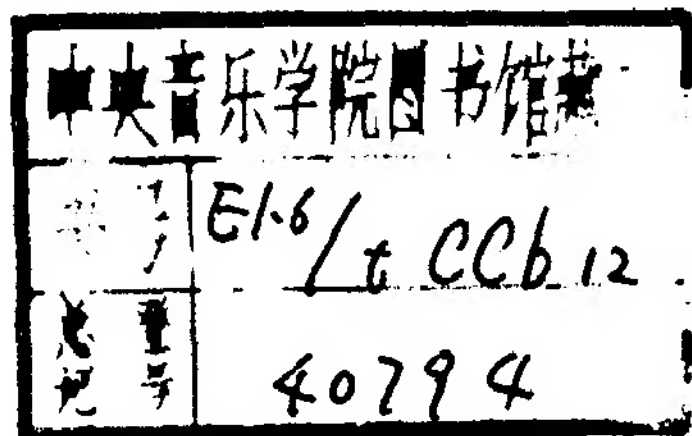 中央音乐学院图书馆藏
E1.6/t CCb 12
总登号
40794